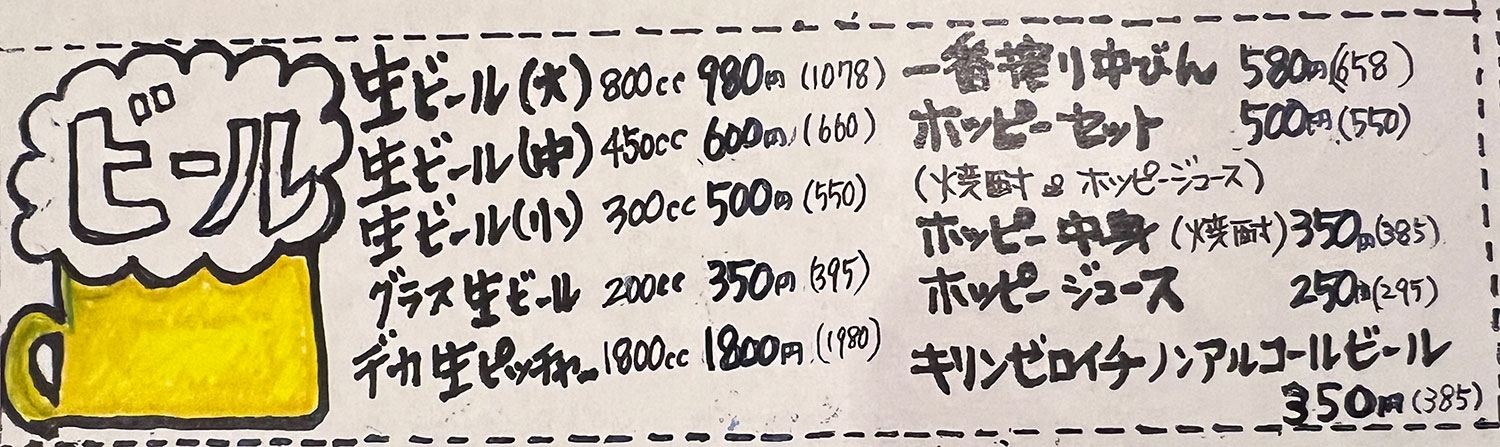 ビール
生ビール(大) 800cc 980円 (1078)
生ビール(中) 450cc 600円 (660)
生ビール(小) 300cc 500円 (550)
グラス生ビール 200cc 350円 (395)
デカ生ピッチャー 1800cc 1800円 (1980)
一番搾り中びん 580円 (658)
ホッピーセット 500円 (550)
(焼酎&ホッピージュース)
ホッピー中身 (焼酎) 350円 (385)
ホッピージュース 250円 (295)
キリンゼロイチノンアルコールビール
350円 (385)